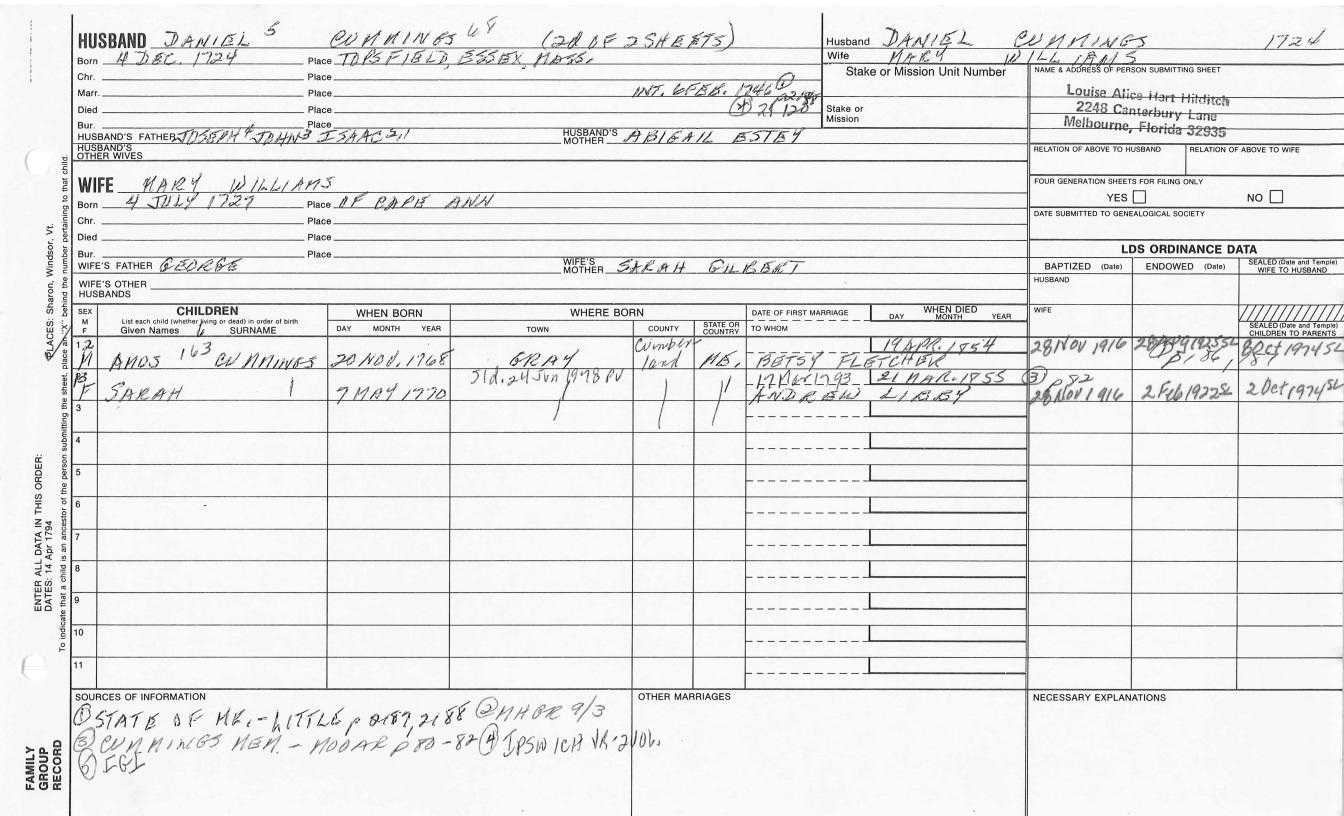 HUSBAND DANIEL 5 CUMMINGS 68 (2d OF 2 SHEETS)
Born 4 DEC. 1724 Place TOPSFIELD, ESSEX, MASS.
Chr. Place
Marr. Place INT. 6 FEB. 1746 ①
Died Place
Bur. Place
HUSBAND'S FATHER JOSEPH4 JOHN3 ISAAC2,1 HUSBAND'S MOTHER ABIGAIL ESTEY
HUSBAND'S OTHER WIVES
WIFE MARY WILLIAMS
Born 4 JULY 1727 Place OF CAPE ANN
Chr. Place
Died Place
Bur. Place
WIFE'S FATHER GEORGE WIFE'S MOTHER SARAH GILBERT
WIFE'S OTHER HUSBANDS
Husband DANIEL CUMMINGS 1724
Wife MARY WILLIAMS
Stake or Mission Unit Number
Stake or Mission
NAME & ADDRESS OF PERSON SUBMITTING SHEET
Louise Alice Hart Hilditch
2248 Canterbury Lane
Melbourne, Florida 32935
RELATION OF ABOVE TO HUSBAND RELATION OF ABOVE TO WIFE
FOUR GENERATION SHEETS FOR FILING ONLY
YES NO
DATE SUBMITTED TO GENEALOGICAL SOCIETY
LDS ORDINANCE DATA
BAPTIZED (Date) ENDOWED (Date) SEALED (Date and Temple) WIFE TO HUSBAND
HUSBAND
WIFE
SEALED (Date and Temple) CHILDREN TO PARENTS
SEX M F
CHILDREN
List each child (whether living or dead) in order of birth
Given Names SURNAME
WHEN BORN
DAY MONTH YEAR
WHERE BORN
TOWN COUNTY STATE OR COUNTRY
DATE OF FIRST MARRIAGE
TO WHOM
WHEN DIED
DAY MONTH YEAR
M AMOS 163 CUMMINGS 20 NOV. 1768 GRAY Cumberland ME. BETSY FLETCHER 19 APR. 1854 28 Nov 1916
F SARAH 7 MAY 1770 Sld. 24 Jun 1978 PV 17 Mar 1793 ANDREW LIBBY 21 MAR. 1855 ③ p 82 28 Nov 1916 2 Feb 1922 SL 2 Oct 1974 SL
3
4
5
6
7
8
9
10
11
SOURCES OF INFORMATION
① STATE OF ME. - LITTLE p 2187, 2188 ② MHGR 9/3
③ CUMMINGS MEM. - MOOAR p 80-82 ④ IPSWICH VR-2 VOL.
⑤ IGI
OTHER MARRIAGES
NECESSARY EXPLANATIONS
PLACES: Sharon, Windsor, Vt.
ENTER ALL DATA IN THIS ORDER:
DATES: 14 Apr 1794
To indicate that a child is an ancestor of the person submitting the sheet, place an "X" behind the number pertaining to that child.
FAMILY
GROUP
RECORD